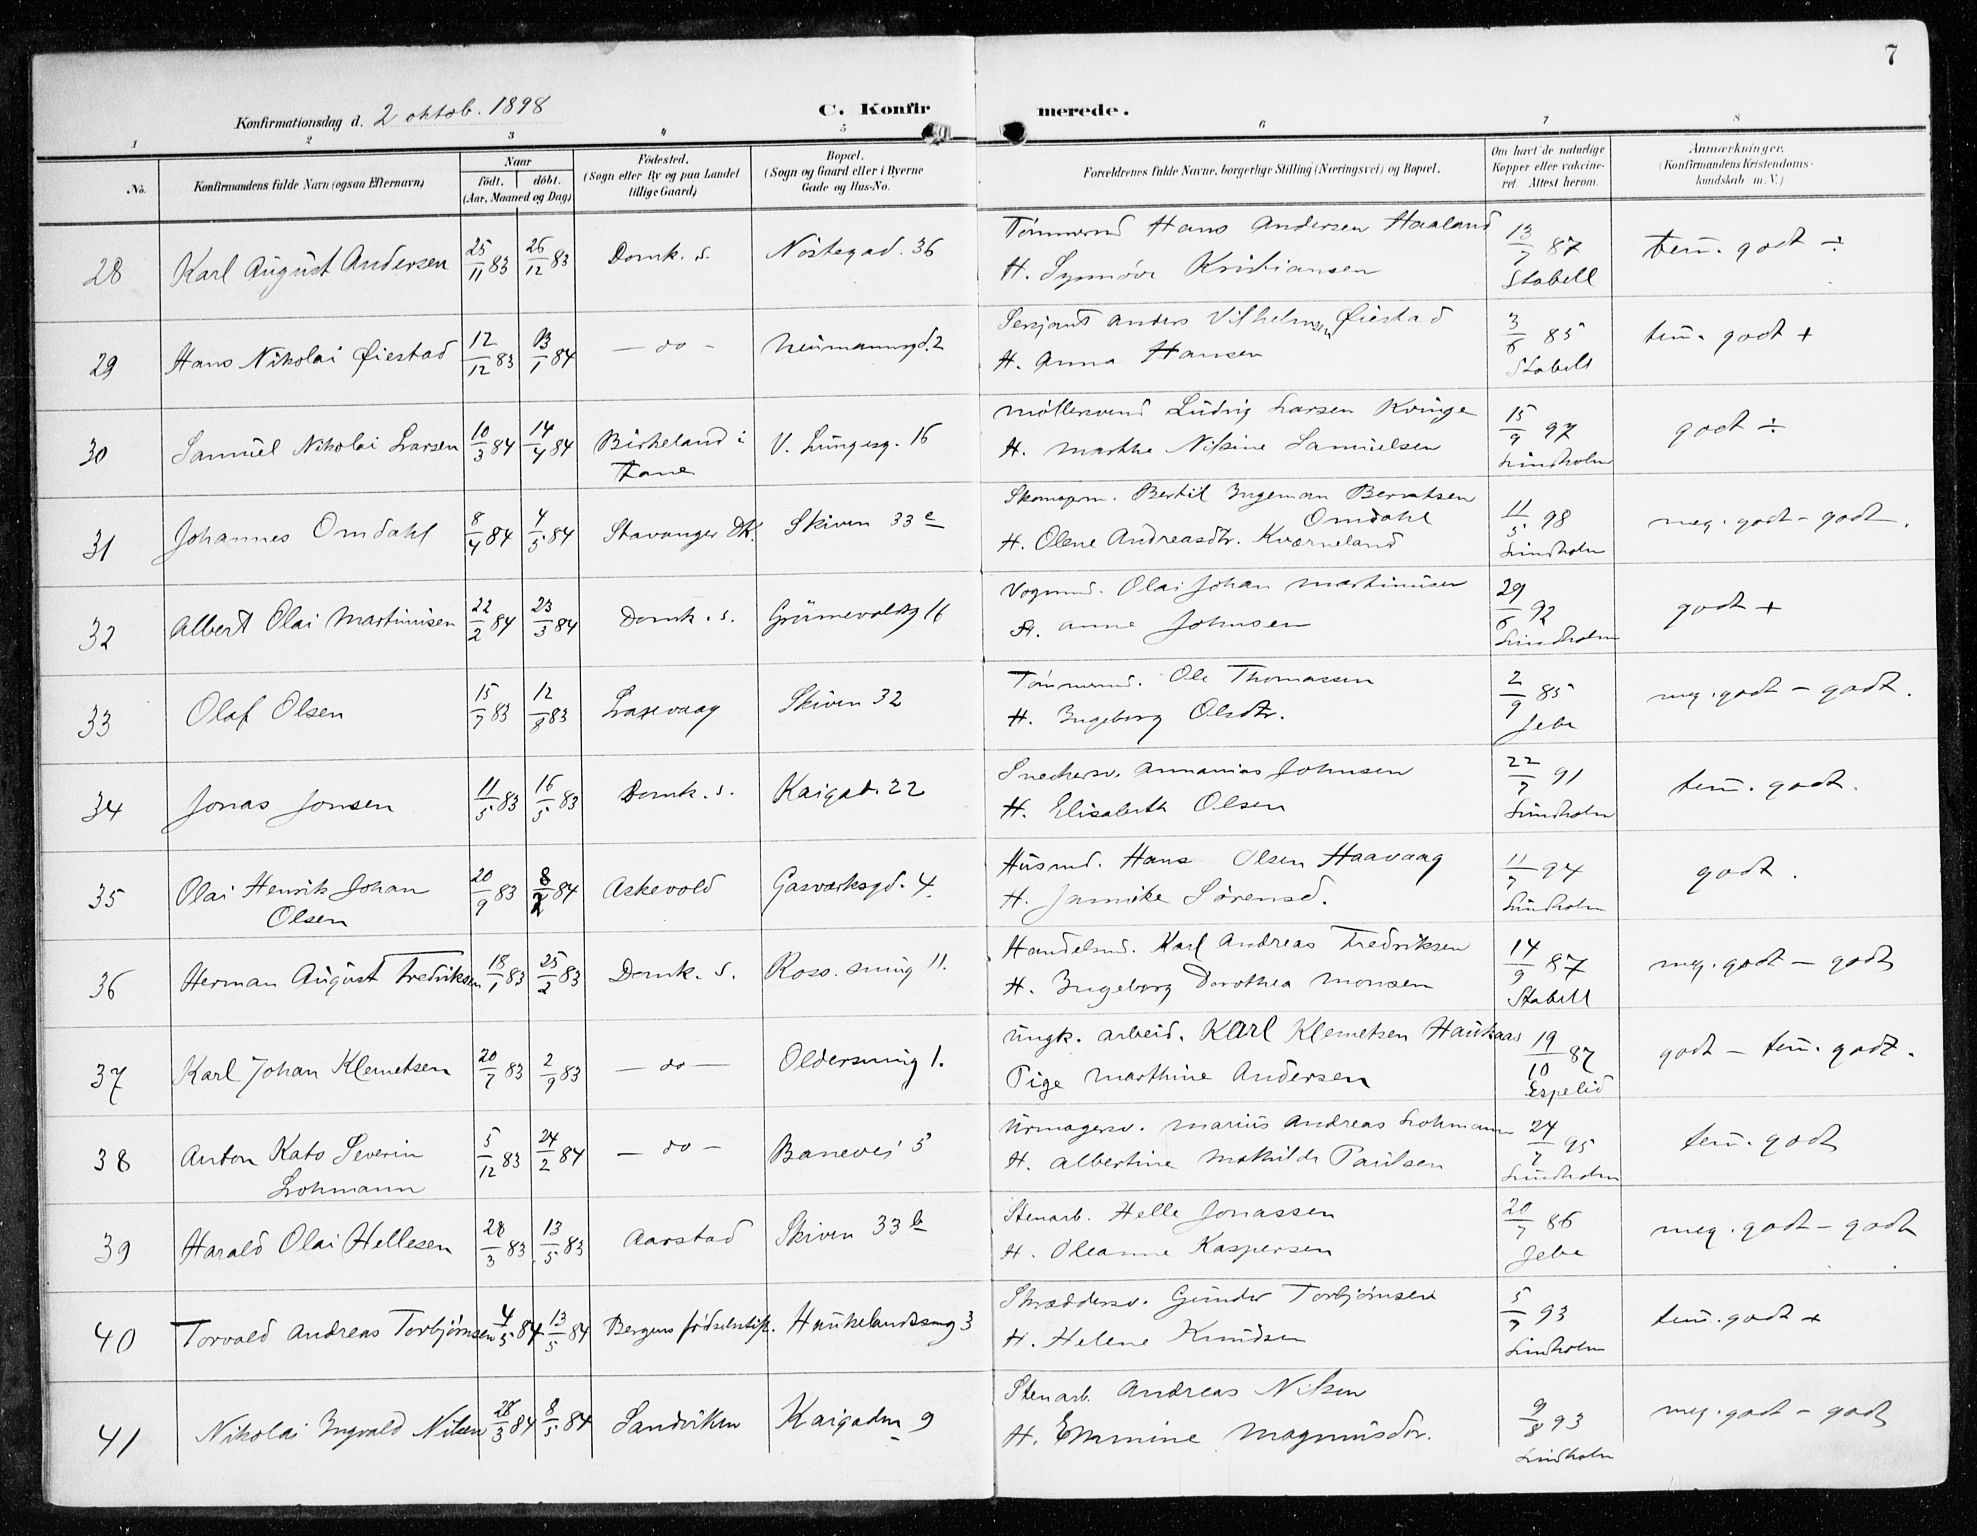 7
Konfirmationsdag d. 2 oktob. 1898
C. Konfirmerede.
1 2 3 4 5 6 7 8
No.
Konfirmandens fulde Navn (ogsaa Efternavn)
Naar
Født. døbt.
(Aar, Maaned og Dag)
Fødested.
(Sogn eller By og paa Landet
tillige Gaard)
Bopæl.
(Sogn og Gaard eller i Byerne
Gade og Hus-No.
Forældrenes fulde Navne, borgerlige Stilling (Næringsvei) og Bopæl.
Om havt de naturlige
Kopper eller vakcine-
ret. Attest herom.
Anmærkninger.
(Konfirmandens Kristendoms-
kundskab m. V.)
28 Karl August Andersen 25/11 83 26/12 83 Domk. s. Nöstegad. 36 Tömmermd Hans Andersen Haaland 13/7 87 tem. godt ÷
H. Synnöve Kristiansen Stabell
29 Hans Nikolai Øiestad 12/12 83 13/1 84 — do — Neumannsgd. 2 Sersjant Anders Vilhelmsen Øiestad 3/6 85 tem. godt +
H. Anna Hansen Stabell
30 Samuel Nikolai Larsen 10/3 84 14/4 84 Birkeland i V. Lungesg. 16 Möllersvend Ludvig Larsen Kvinge 15/9 97 godt ÷
Fane H. Marthe Nilsine Samuelsen Lindholm
31 Johannes Omdahl 8/4 84 4/5 84 Stavanger DK. Skiven 33 e Skomagerm. Bertil Ingeman Berntsen 11/5 98 meg. godt – godt.
Omdahl
H. Olene Andreasdtr. Kværneland Lindholm
32 Albert Olai Martinusen 22/2 84 23/3 84 Domk. s. Grünevoldsg 16 Vognmd. Olai Johan Martinusen 29/6 92 godt +
H. Anne Johnsen Lindholm
33 Olaf Olsen 15/7 83 12/8 83 Laxevaag Skiven 32 Tömmermd. Ole Thomassen 2/9 85 meg. godt – godt.
H. Ingeborg Olsdtr. Jebe
34 Jonas Jonsen 11/5 83 16/5 83 Domk. s. Kaigad. 22 Snedkersv. Annanias Johnsen 22/7 91 tem. godt.
H. Elisabeth Olsen Lindholm
35 Olai Henrik Johan 20/9 83 8/2 84 Askevold Gasværksgd. 4. Husmd. Hans Olsen Haavaag 11/7 94 godt.
Olsen H. Jannike Sörensd. Lindholm
36 Herman August Fredriksen 18/1 83 25/2 83 Domk. s. Ross.smug 11. Handelsmd. Karl Andreas Fredriksen 14/9 87 meg. godt – godt
H. Ingeborg Dorothea Monsen Stabell
37 Karl Johan Klemetsen 20/7 83 2/9 83 — do — Oldersmug 1. Ungk. arbeid. Karl Klemetsen Haukaas 19/10 87 godt – tem. godt.
Pige Marthine Andersen Espelid
38 Anton Kato Severin 5/12 83 24/2 84 — do — Banevei 5 Urmagersv. Marius Andreas Lohmann 24/7 95 tem. godt
Lohmann H. Albertine Mathilde Paulsen Lindholm
39 Harald Olai Hellesen 28/3 83 13/5 83 Aarstad Skiven 33 b Stenarb. Helle Jonassen 20/7 86 meg. godt – godt
H. Oleanne Kaspersen Jebe
40 Torvald Andreas Torbjörnsen 4/5 84 13/5 84 Bergens födselsstift. Haukelandssmug 3 Skræddersv. Gunder Torbjörnsen 5/7 93 tem. godt +
H. Helene Knudsen Lindholm
41 Nikolai Ingvald Nilsen 28/3 84 8/5 84 Sandviken Kaigaden 9 Stenarb. Andreas Nilsen 9/8 93 meg. godt – godt
H. Emmine Magnusdtr. Lindholm